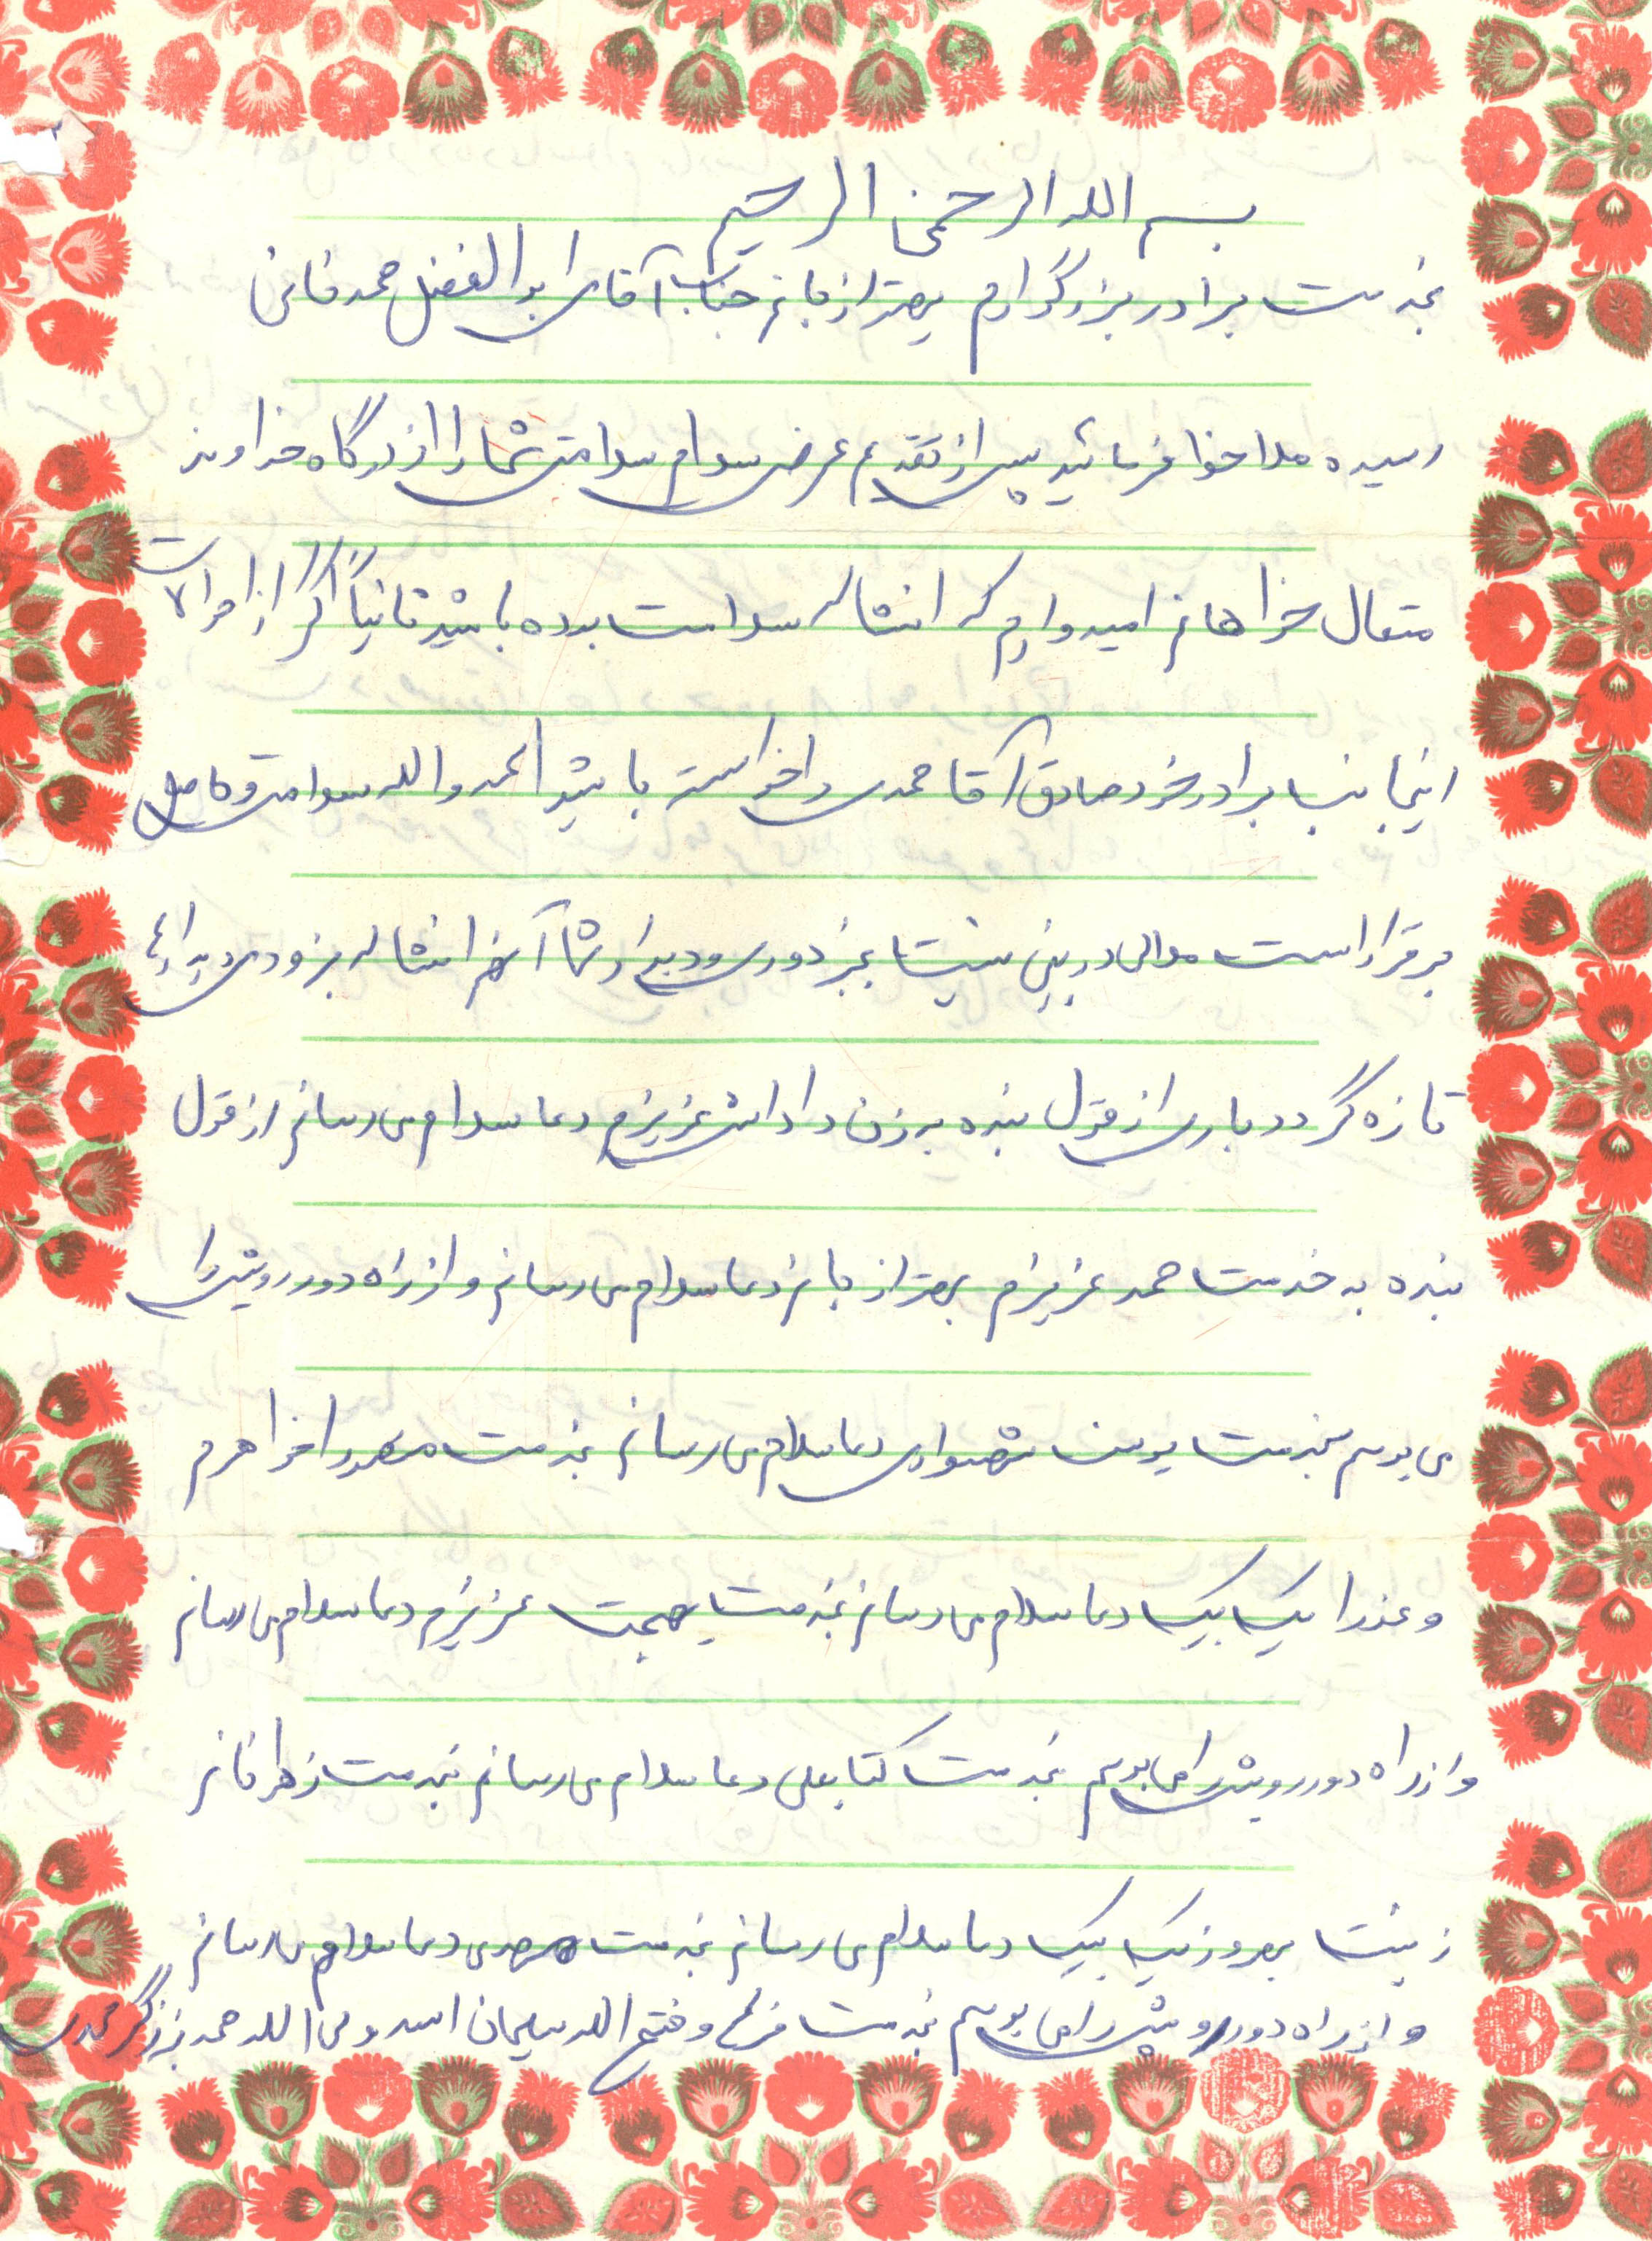 بسم الله الرحمن الرحیم
بخدمت برادر بزرگوارم بهتراز جانم جناب آقای ابوالفضل محمدخانی
رسیده ملاحظا فرمائید پس از تقدیم عرض سلام سلامتی شما را از درگاه خداوند
متعال خواهانم امیدوارم که انشاله سلامت بوده باشید ثانیاً اگر از احوالات
اینجانب برادر خود صادق آقا محمدی را خواسته باشید الحمد والله سلامتی کامل
برقرار است ملالی در بین نیست بجز دوری و دیدار شما آنهم انشاله بزودی دیدارها
تازه گردد باری از قول بنده به زن داداش عزیزم دعا سلام می رسانم از قول
بنده به خدمت محمد عزیزم بهتر از جانم دعا سلام می رسانم و از راه دور رویش را
می بوسم بخدمت یوسف شهسواری دعا سلام می رسانم بخدمت خواهرم
و عذرا یک یک دعا سلام می رسانم بخدمت بهجت عزیزم دعا سلام می رسانم
و از راه دور رویش را می بوسم بخدمت کتابعلی دعا سلام می رسانم بخدمت زهرا خانم
زینت بهروز یک یک دعا سلام می رسانم بخدمت مهدی دعا سلام می رسانم
و از راه دور رویش را می بوسم بخدمت فرج و فتح الله سلیمان اسد ولی الله محمد بزرگر محمدی